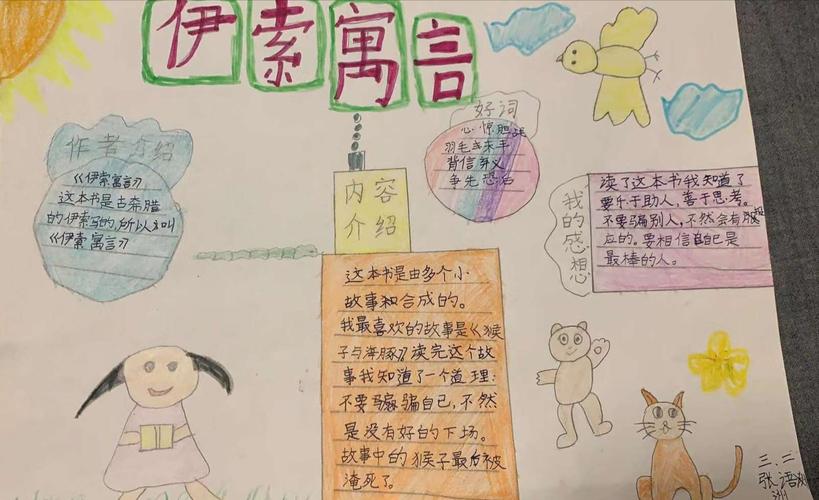 伊索寓言
作者介绍
《伊索寓言》
这本书是古希腊
的伊索写的,所以叫
《伊索寓言》
好词
心惊胆战
背信弃义
争先恐后
内容
介绍
这本书是由多个小
故事和合成的。
我最喜欢的故事是《猴
子与海豚》读完这个故
事我知道了一个道理:
不要骗自己,不然
是没有好的下场。
故事中的猴子最后被
淹死了。
我的感想
读了这本书我知道了
要乐于助人,善于思考。
不要骗别人,不然会有报
应的。要相信自己是
最棒的人。
三.二
张语